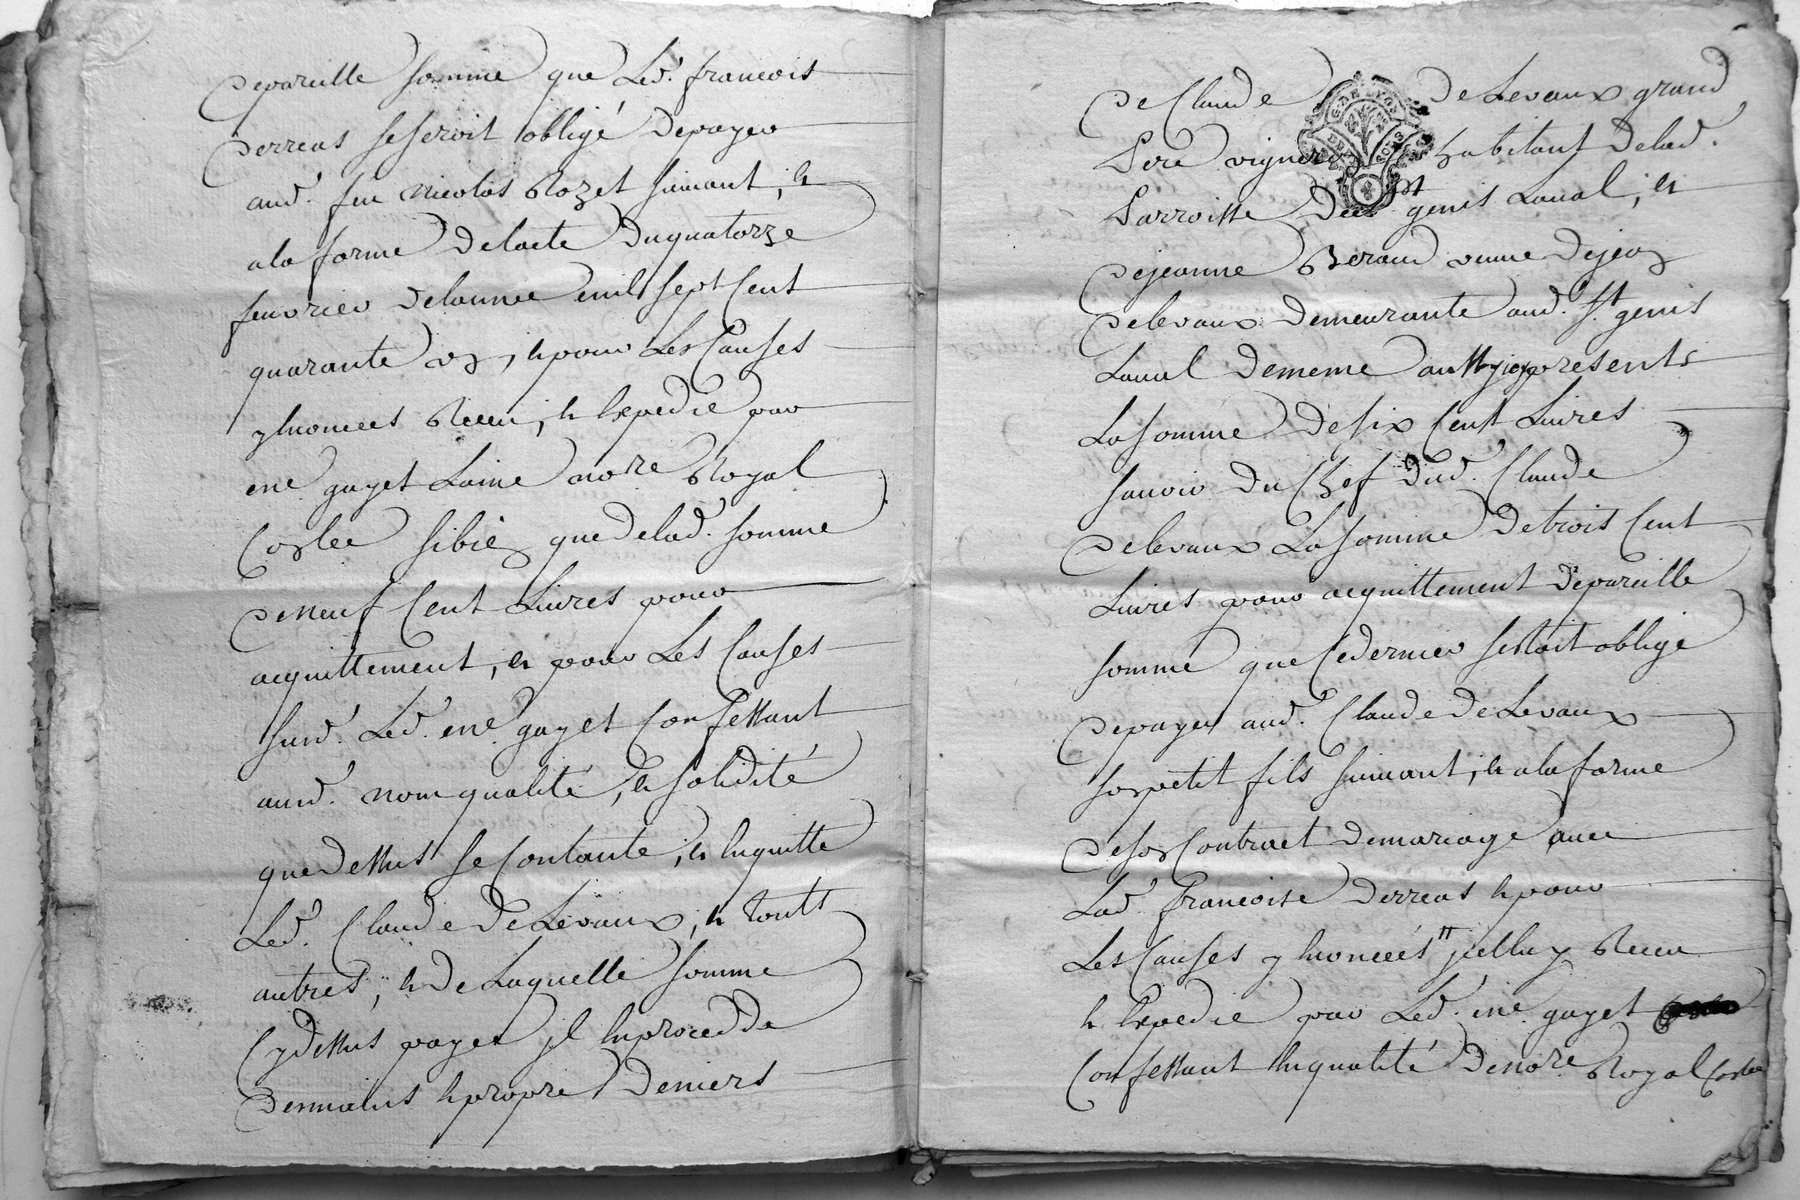 depareille somme que Led. francois
derreas seseroit obligé depayer
aud. feu nicolas Rozet suivant, et
ala forme delacte duquatorze
feuvrier delannee mil sept Cent
quarante un, et pour Les Causes
y Enoncees Receu, et Expedie par
me. gayet Laine nore Royal
que delad. somme
deneuf Cent Livres pour
acquittement, et pour Les Causes
susd. Led. me. gayet Confessant
aud. nom qualité, et solidité
que dessus se Contante, et Enquitte
Led. Claude de Levaux, et touts
autres, et de Laquelle somme
Cy dessus payer jl Enprocedde
demains et propre deniers
de Claude de Levaux grand
Pere vigneron habitant delad.
Parroisse de st genis Laual, et
dejeanne Beraud veuve dejean
delevaux demeurante aud. st. genis
Laual dememe aussy jcy presents
La somme desix Cent Livres
sauoir du Chef dud. Claude
delevaux La somme detrois Cent
Livres pour acquittement depareille
somme que Cedernier sestoit obligé
depayer aud. Claude de Levaux
son petit fils suivant, et ala forme
deson Contract demariage auec
Lad. francoise derreas et pour
Les Causes y Enoncéés jcelluy Receu
et Expedie par Led. me. gayet
Confessant Enqualité denore Royal
G. DE LYON